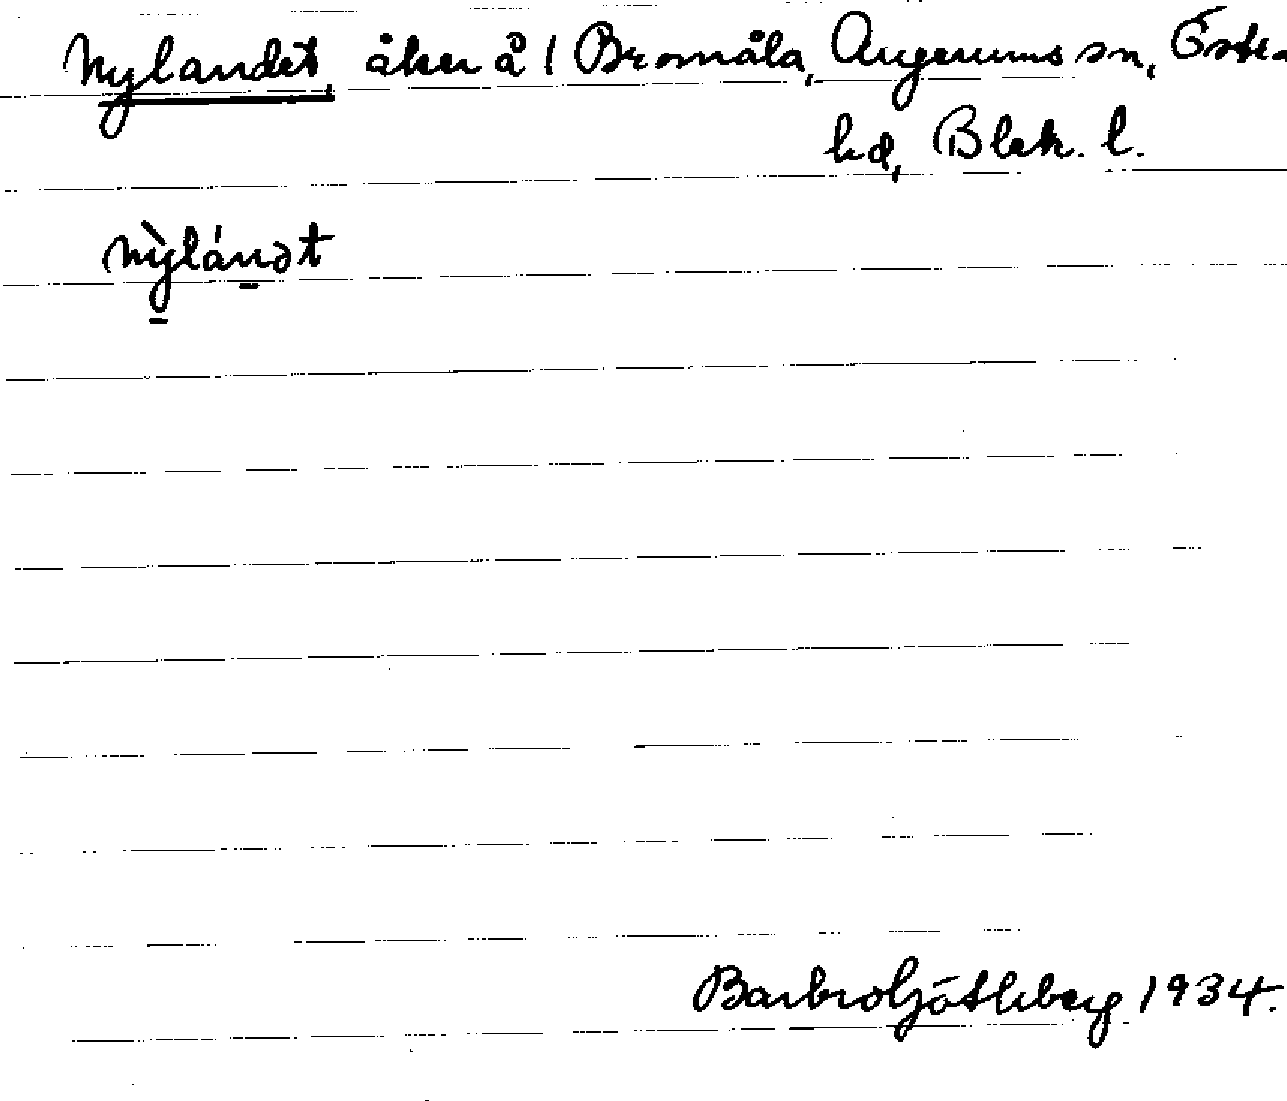 Nylandet, åker å 1 Bromåla, Augerums sn, Östra
hd, Blek. l.
nỳlánət
Barbro Götheberg 1934.